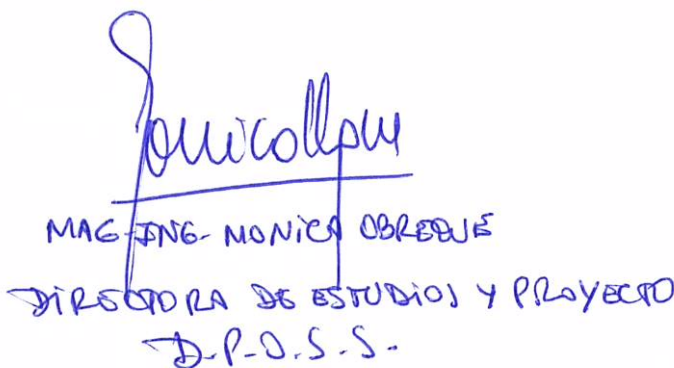 MAG-ING- MONICA OBREQUE
DIRECTORA DE ESTUDIOS Y PROYECTO
D.P.O.S.S.